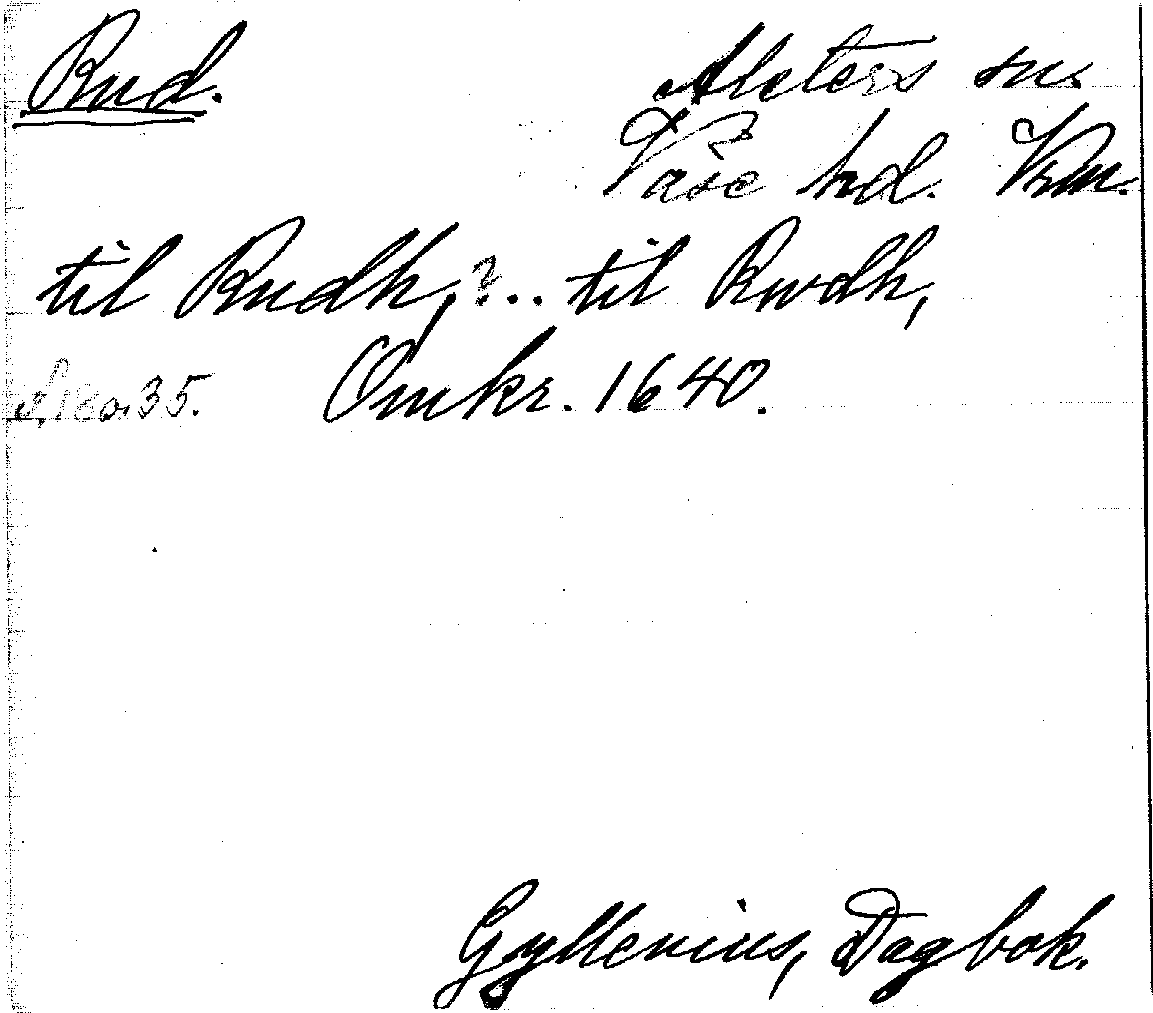 Rud.
Alsters sn.
Väse hd. Vrm.
til Rudh, ?.. til Rwdh,
S. 180, 35. Omkr. 1640.
Gyllenius, Dagbok.